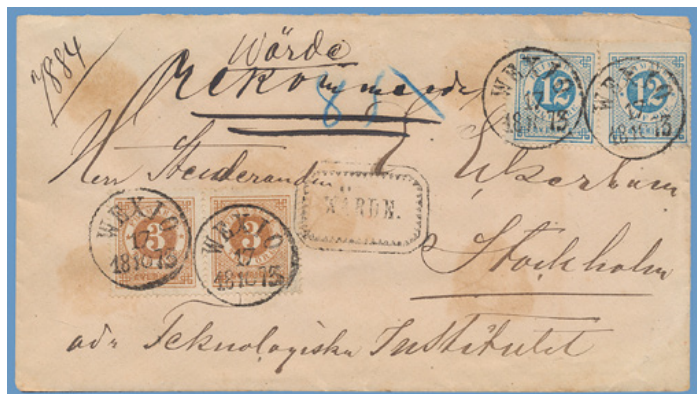 7884
Wörde
Rekommende
88
12
12
WEXIO
17
1810 73
WEXIO
17
1810 73
Herr Studeranden
E. Ekerbom
VÄRDE.
3
3
WEXIO
17
1810 73
WEXIO
17
1810 73
Stockholm
adr Teknologiska Institutet